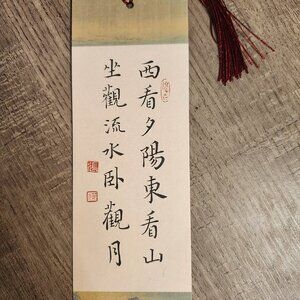 西看夕陽東看山
坐觀流水卧觀月